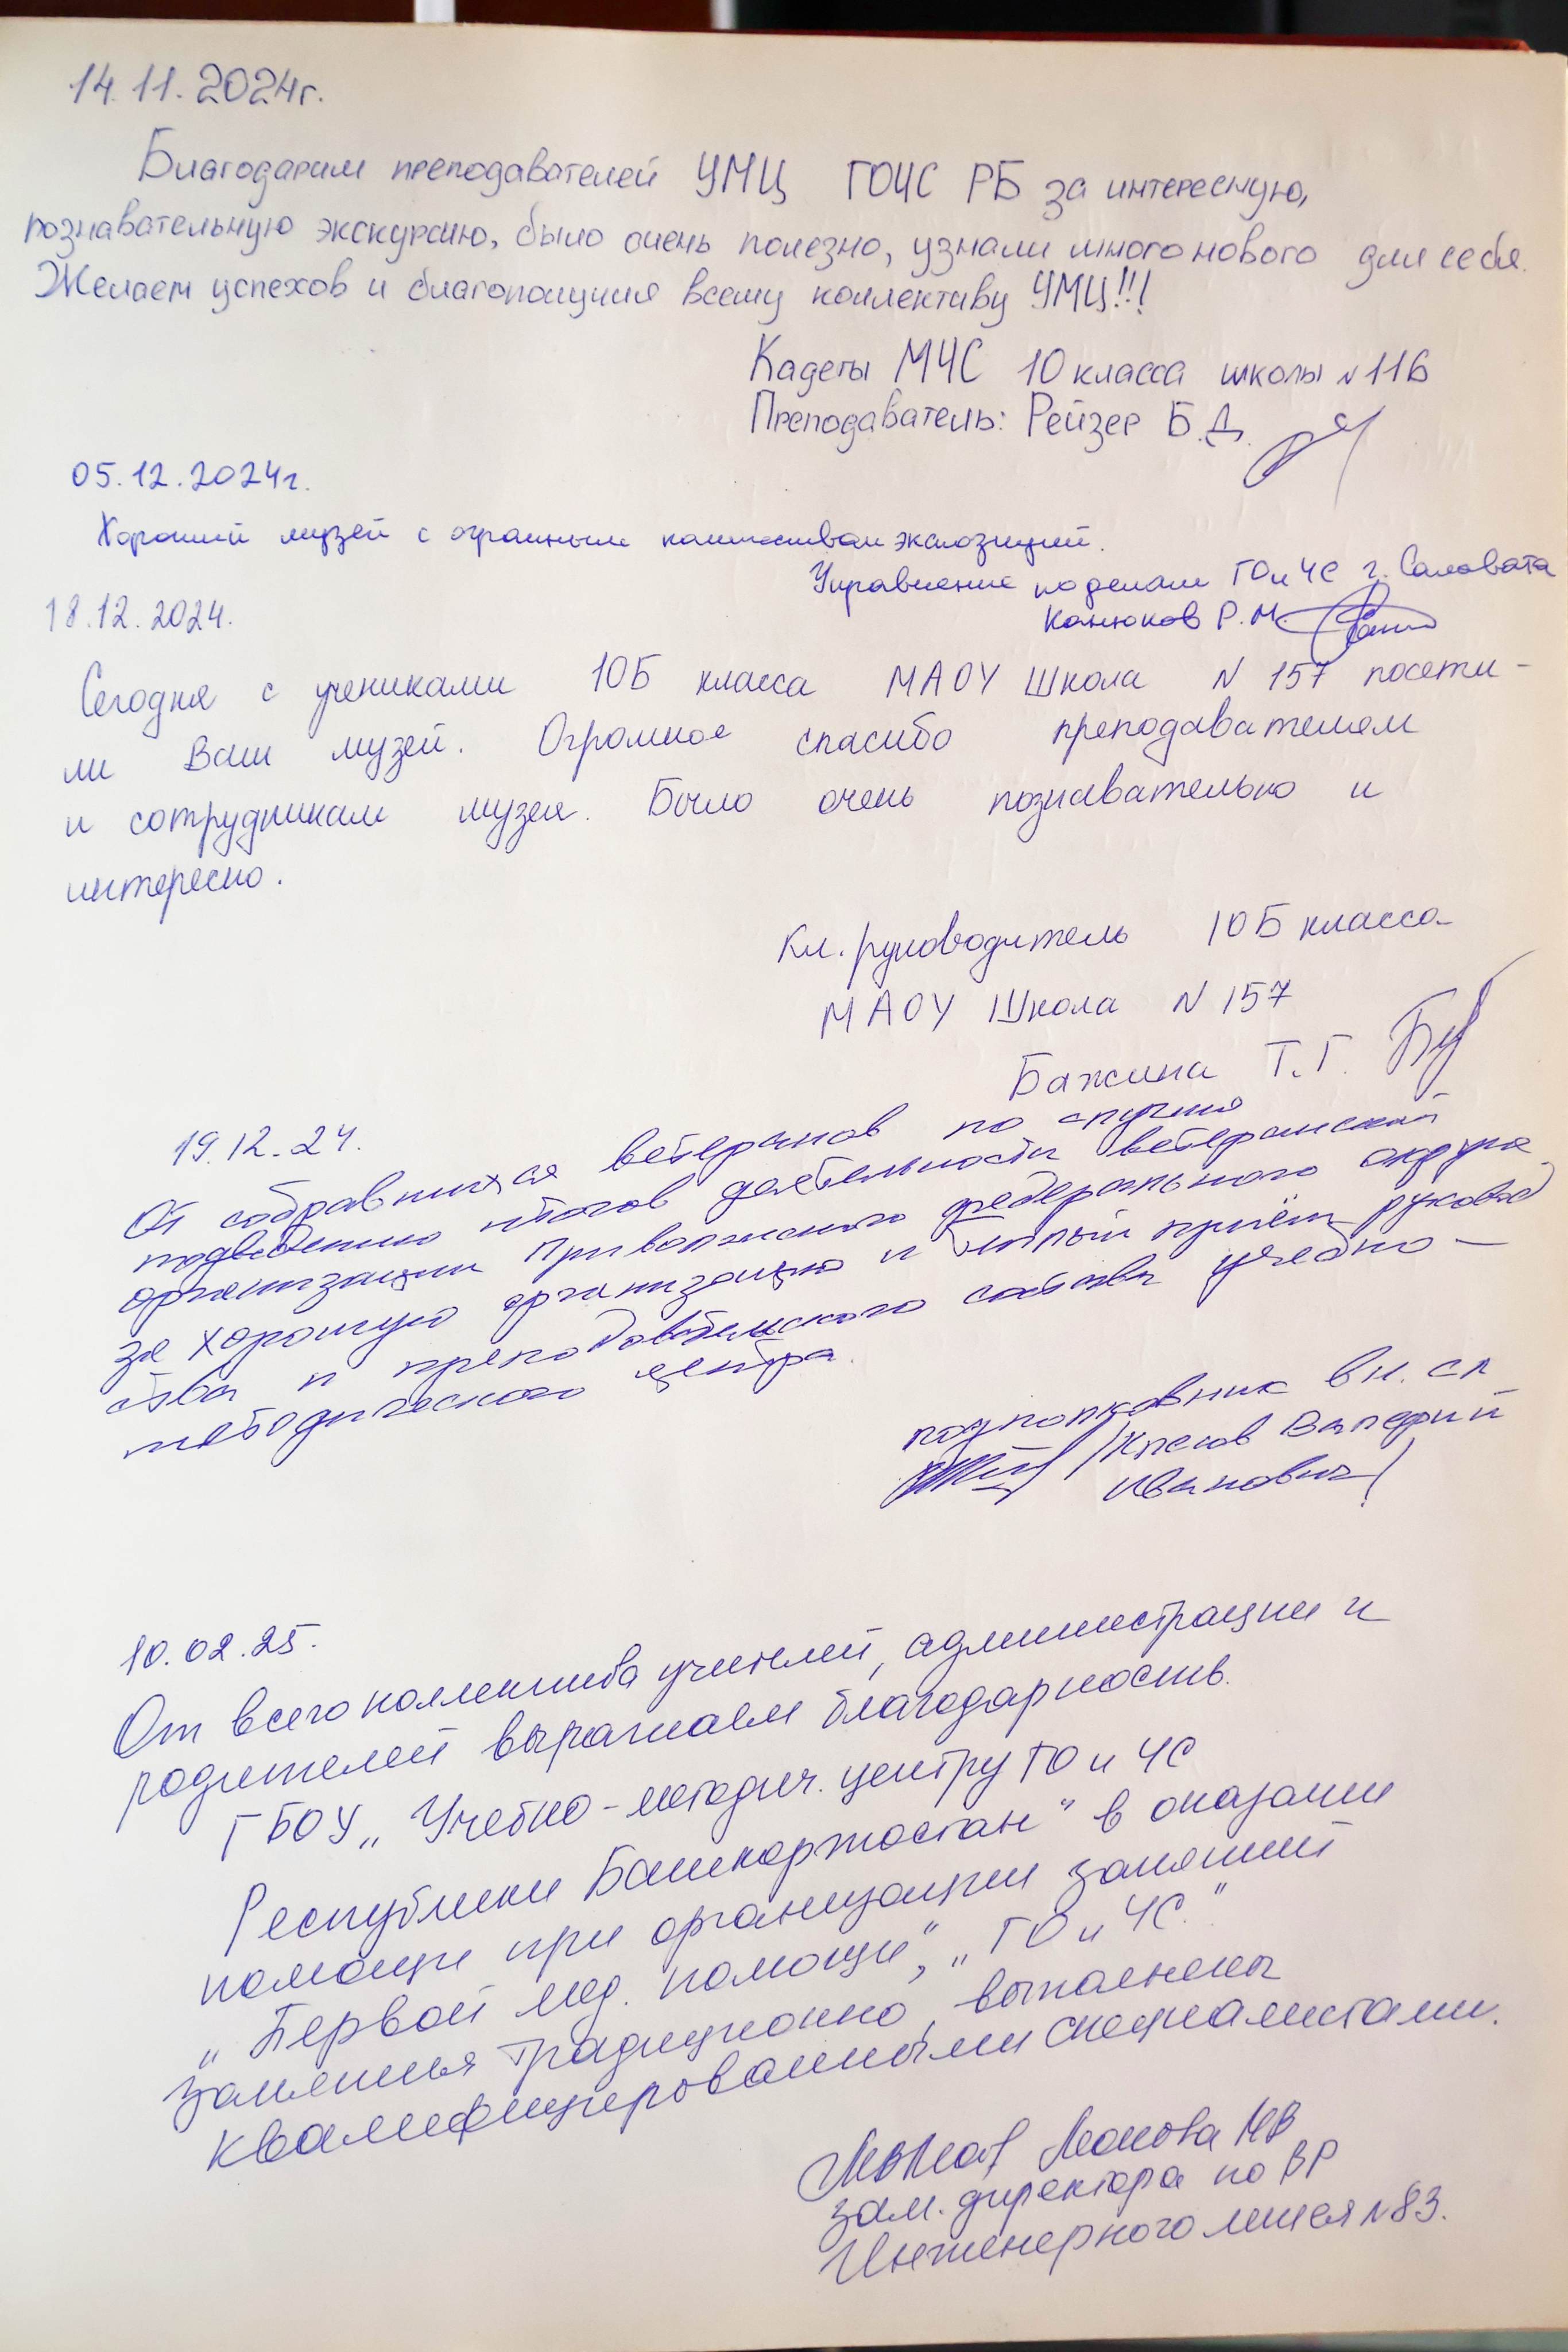 14.11.2024г.
Благодарим преподавателей УМЦ ГОЧС РБ за интересную,
познавательную экскурсию, было очень полезно, узнали много нового для себя.
Желаем успехов и благополучия всему коллективу УМЦ!!!
Кадеты МЧС 10 класса школы №116
Преподаватель: Рейзер Б.Д.
05.12.2024г.
Хороший музей с огромным количеством экспозиций.
Управление по делам ГО и ЧС г. Салавата
Канюков Р.М.
18.12.2024.
Сегодня с учениками 10Б класса МАОУ Школа N 157 посети-
ли Ваш музей. Огромное спасибо преподавателям
и сотрудникам музея. Было очень познавательно и
интересно.
Кл. руководитель 10Б класса
МАОУ Школа N 157
Бажина Т.Г.
19.12.24.
От собравшихся ветеранов по случаю
подведению итогов деятельности ветеранской
организации Приволжского федерального округа
за хорошую организацию и тёплый приём руковод
ства и преподавательского состава учебно-
методического центра.
подполковник вн. сл
Валерий
Иванович/
10.02.25.
От всего коллектива учителей, администрации и
родителей выражаем благодарность.
ГБОУ „Учебно-методич. центру ГО и ЧС
Республики Башкортостан" в оказании
помощи при организации занятий
„Первой мед. помощи", „ГО и ЧС."
Занятия традиционно, выполнены
квалифицированными специалистами.
МВ
зам. директора по ВР
Инженерного лицея №83.